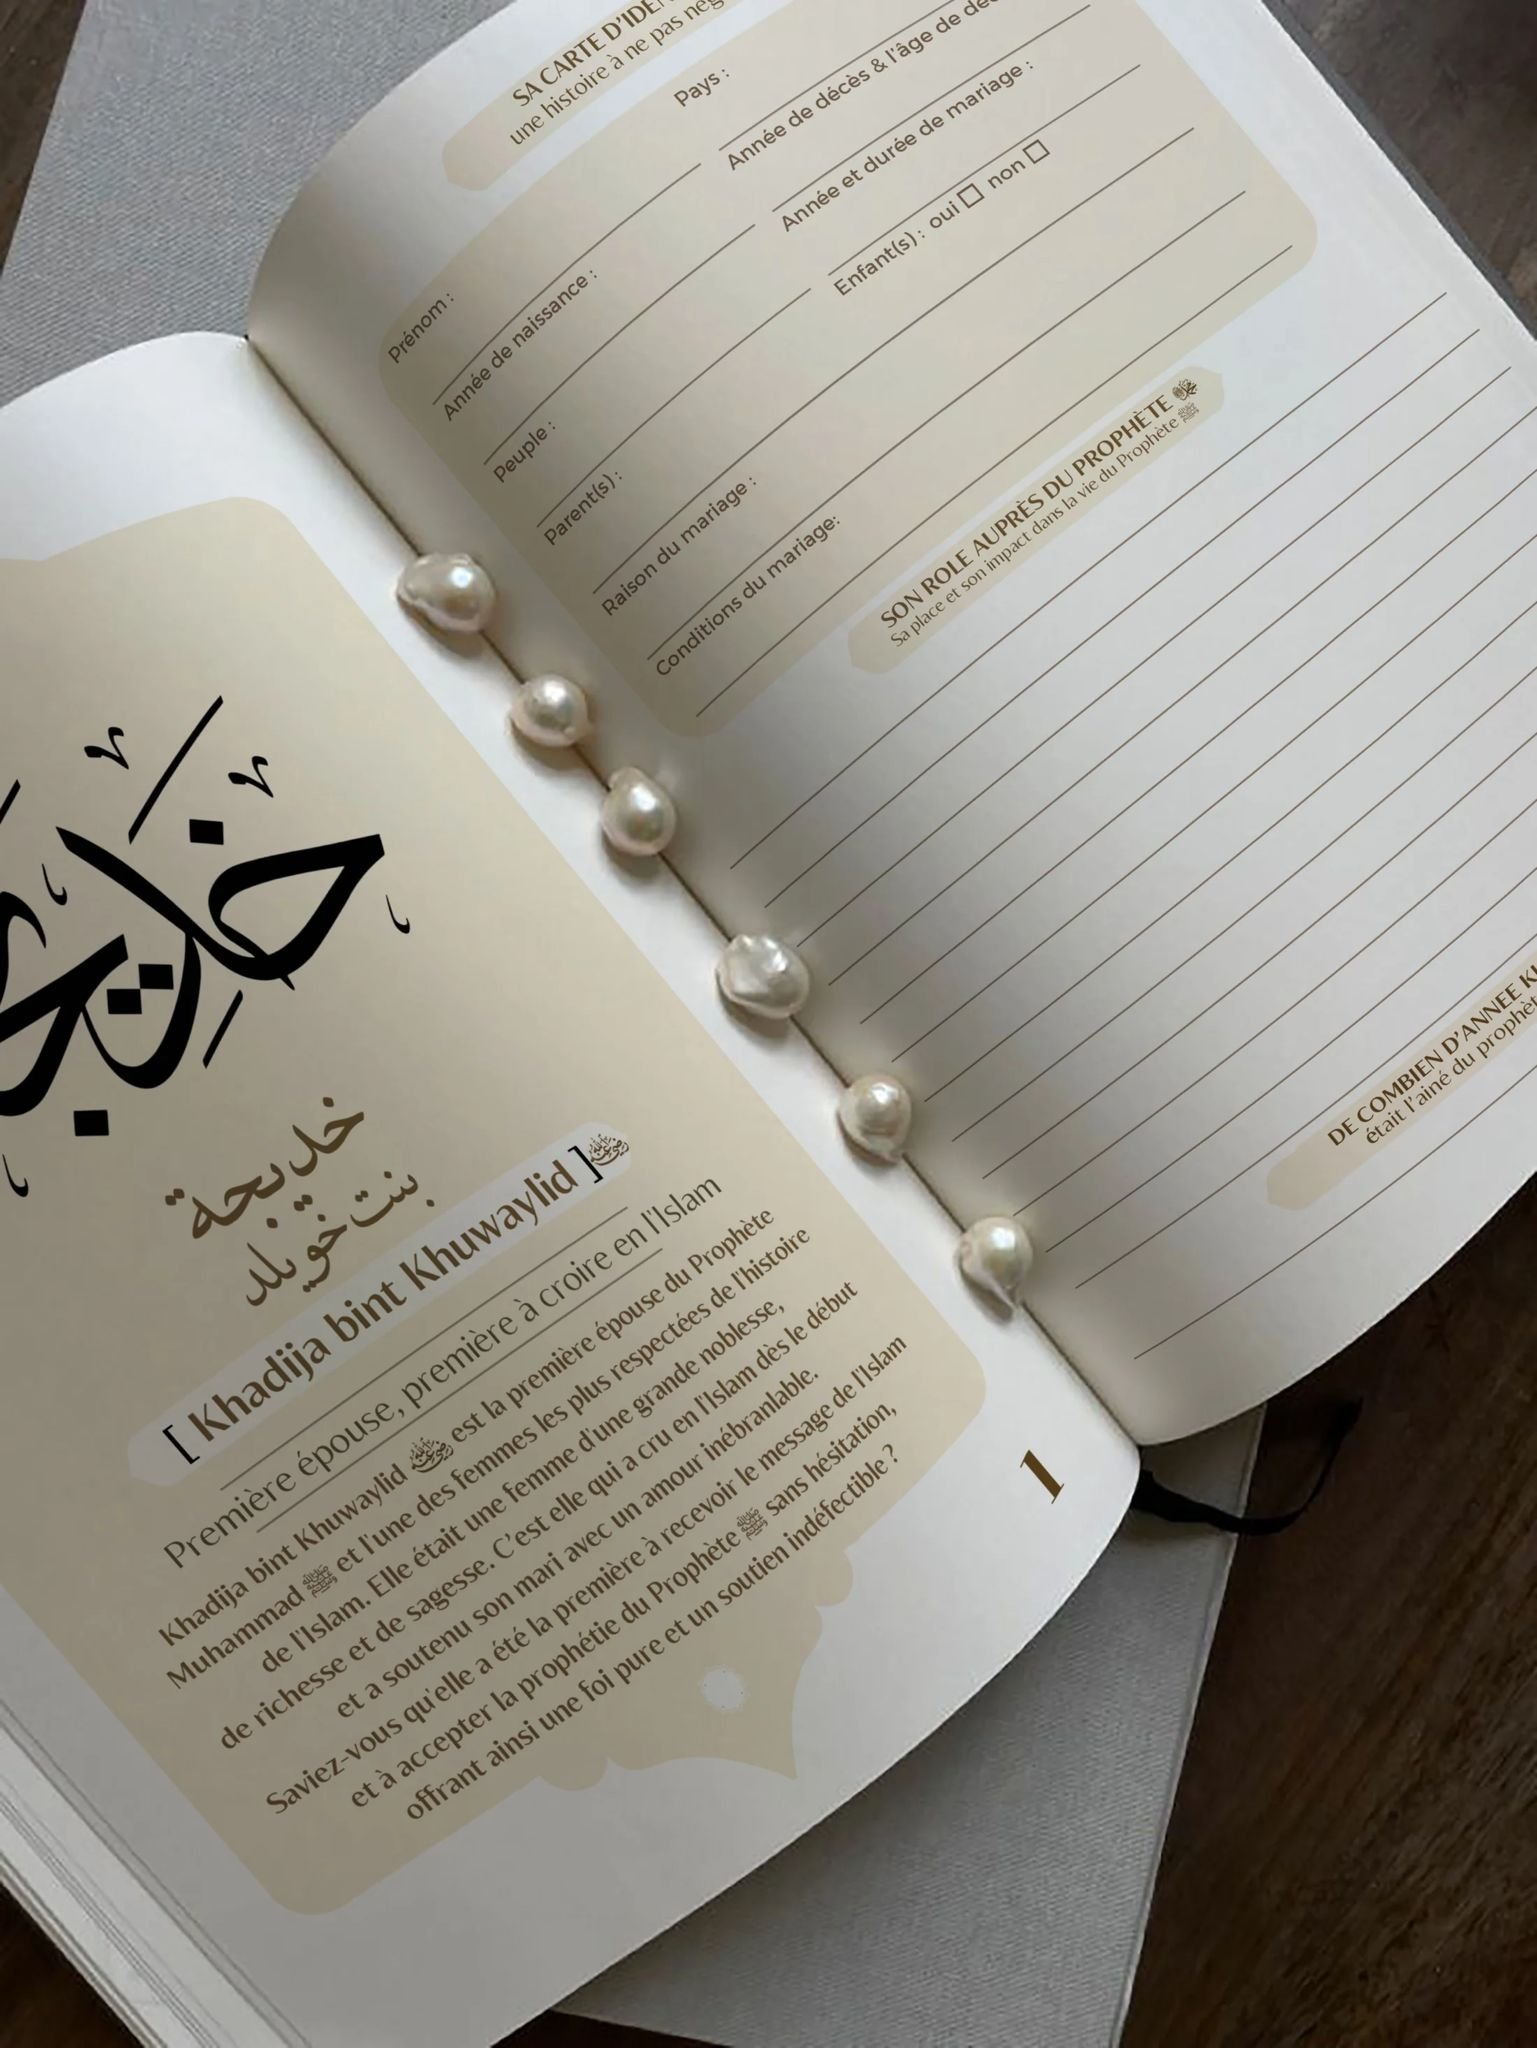 خديجة
خديجة
بنت خويلد
[ Khadija bint Khuwaylid ] رضي الله عنها
Première épouse, première à croire en l'Islam
Khadija bint Khuwaylid رضي الله عنها est la première épouse du Prophète
Muhammad ﷺ et l'une des femmes les plus respectées de l'histoire
de l'Islam. Elle était une femme d'une grande noblesse,
de richesse et de sagesse. C'est elle qui a cru en l'Islam dès le début
et a soutenu son mari avec un amour inébranlable.
Saviez-vous qu'elle a été la première à recevoir le message de l'Islam
et à accepter la prophétie du Prophète ﷺ sans hésitation,
offrant ainsi une foi pure et un soutien indéfectible ?
1
SA CARTE D'IDEN
une histoire à ne pas nég
Prénom :
Pays :
Année de naissance :
Année de décès & l'âge de déc
Peuple :
Année et durée de mariage :
Parent(s) :
Enfant(s) : oui □ non □
Raison du mariage :
Conditions du mariage:
SON ROLE AUPRÈS DU PROPHÈTE ﷺ
Sa place et son impact dans la vie du Prophète ﷺ
DE COMBIEN D'ANNEE K
était l'ainé du prophèt